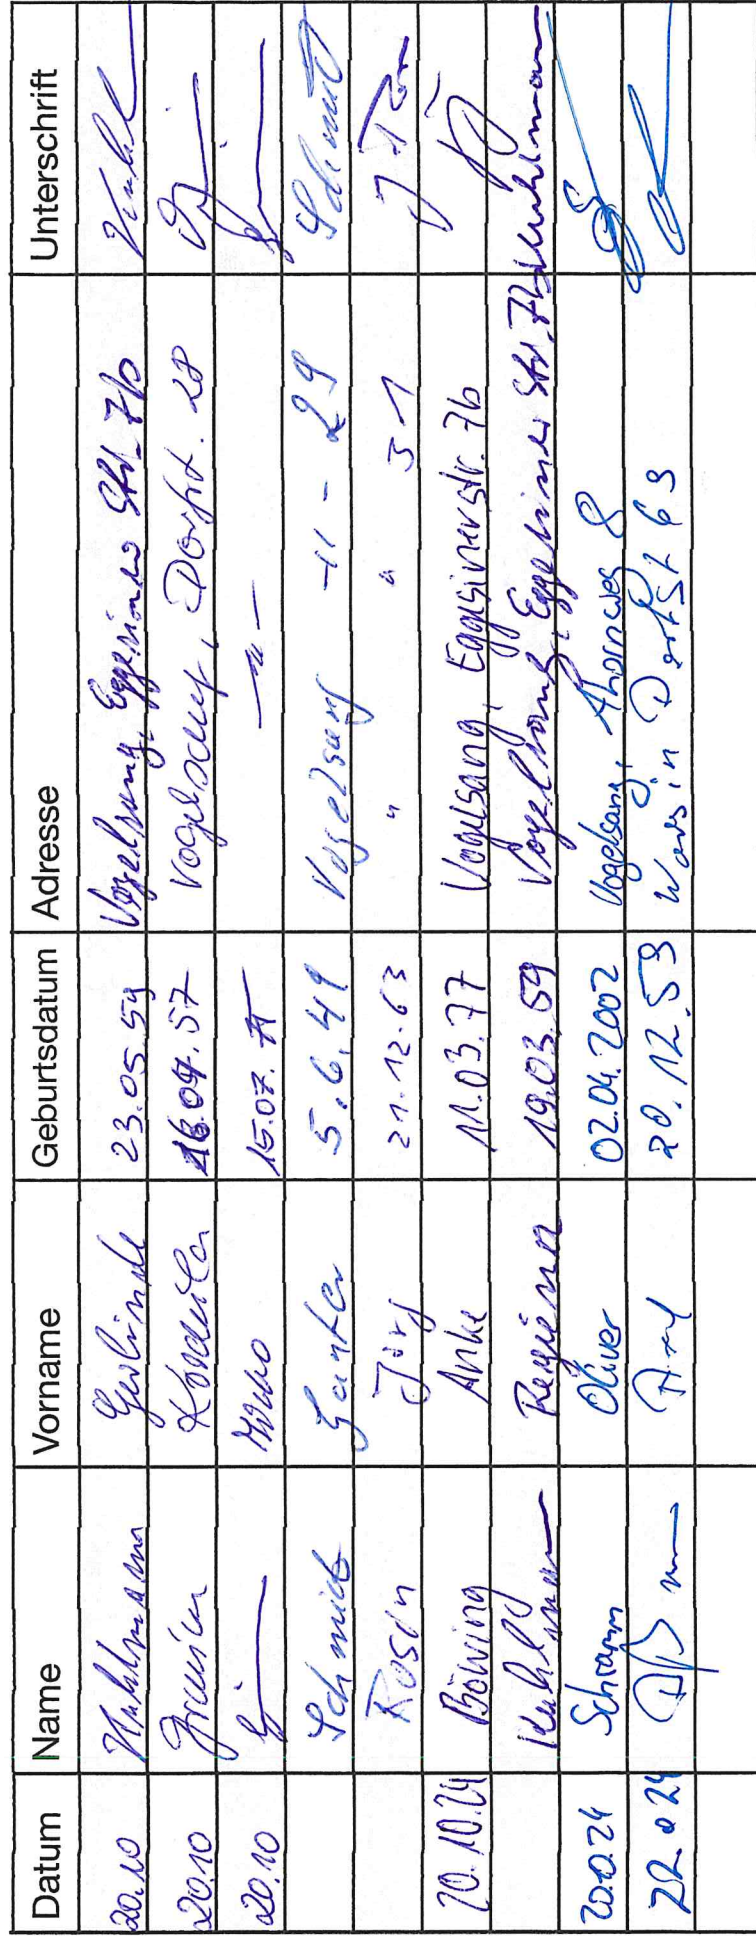 Datum Name Vorname Geburtsdatum Adresse Unterschrift
20.10 Kuhlmann Gerlinde 23.05.59 Vogelsang, Eggesiner Str. 7b
20.10 16.07.57 Vogelsang, Dorfstr. 28
20.10 15.07.77 -"-
Schmidt Günter 5.6.41 Vogelsang -"- 29 Schmidt
Rosin Jörg 21.12.63 " " 31
20.10.24 Böwing Anke 11.03.77 Vogelsang, Eggesinerstr. 7b
Kuhlmann 19.03.59 Vogelsang, Eggesiner Str. 7b Kuhlmann
20.10.24 Schramm Oliver 02.04.2002 Vogelsang, Ahornweg 8
20.12.59 Warsin Dorfstr 63